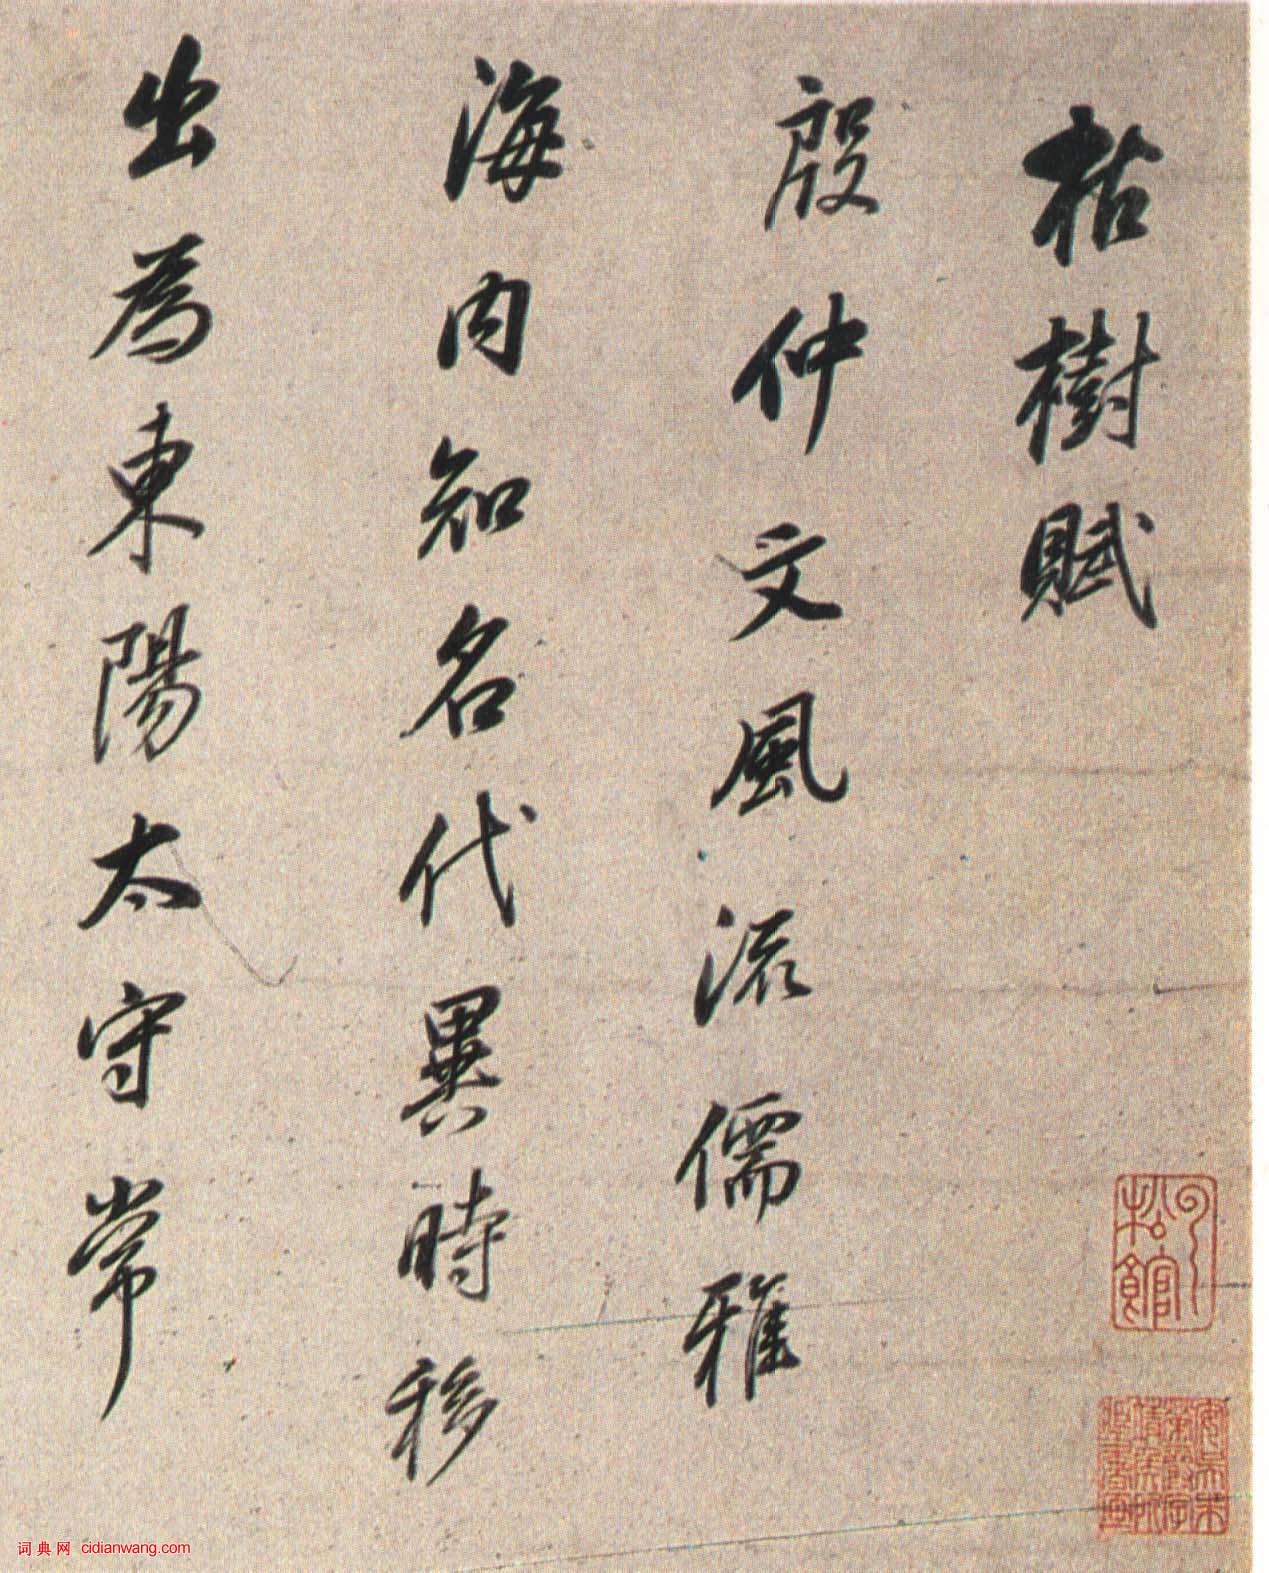 枯樹賦
殷仲文風流儒雅
海内知名代異時移
出為東陽太守常
松館
词典网 cidianwang.com